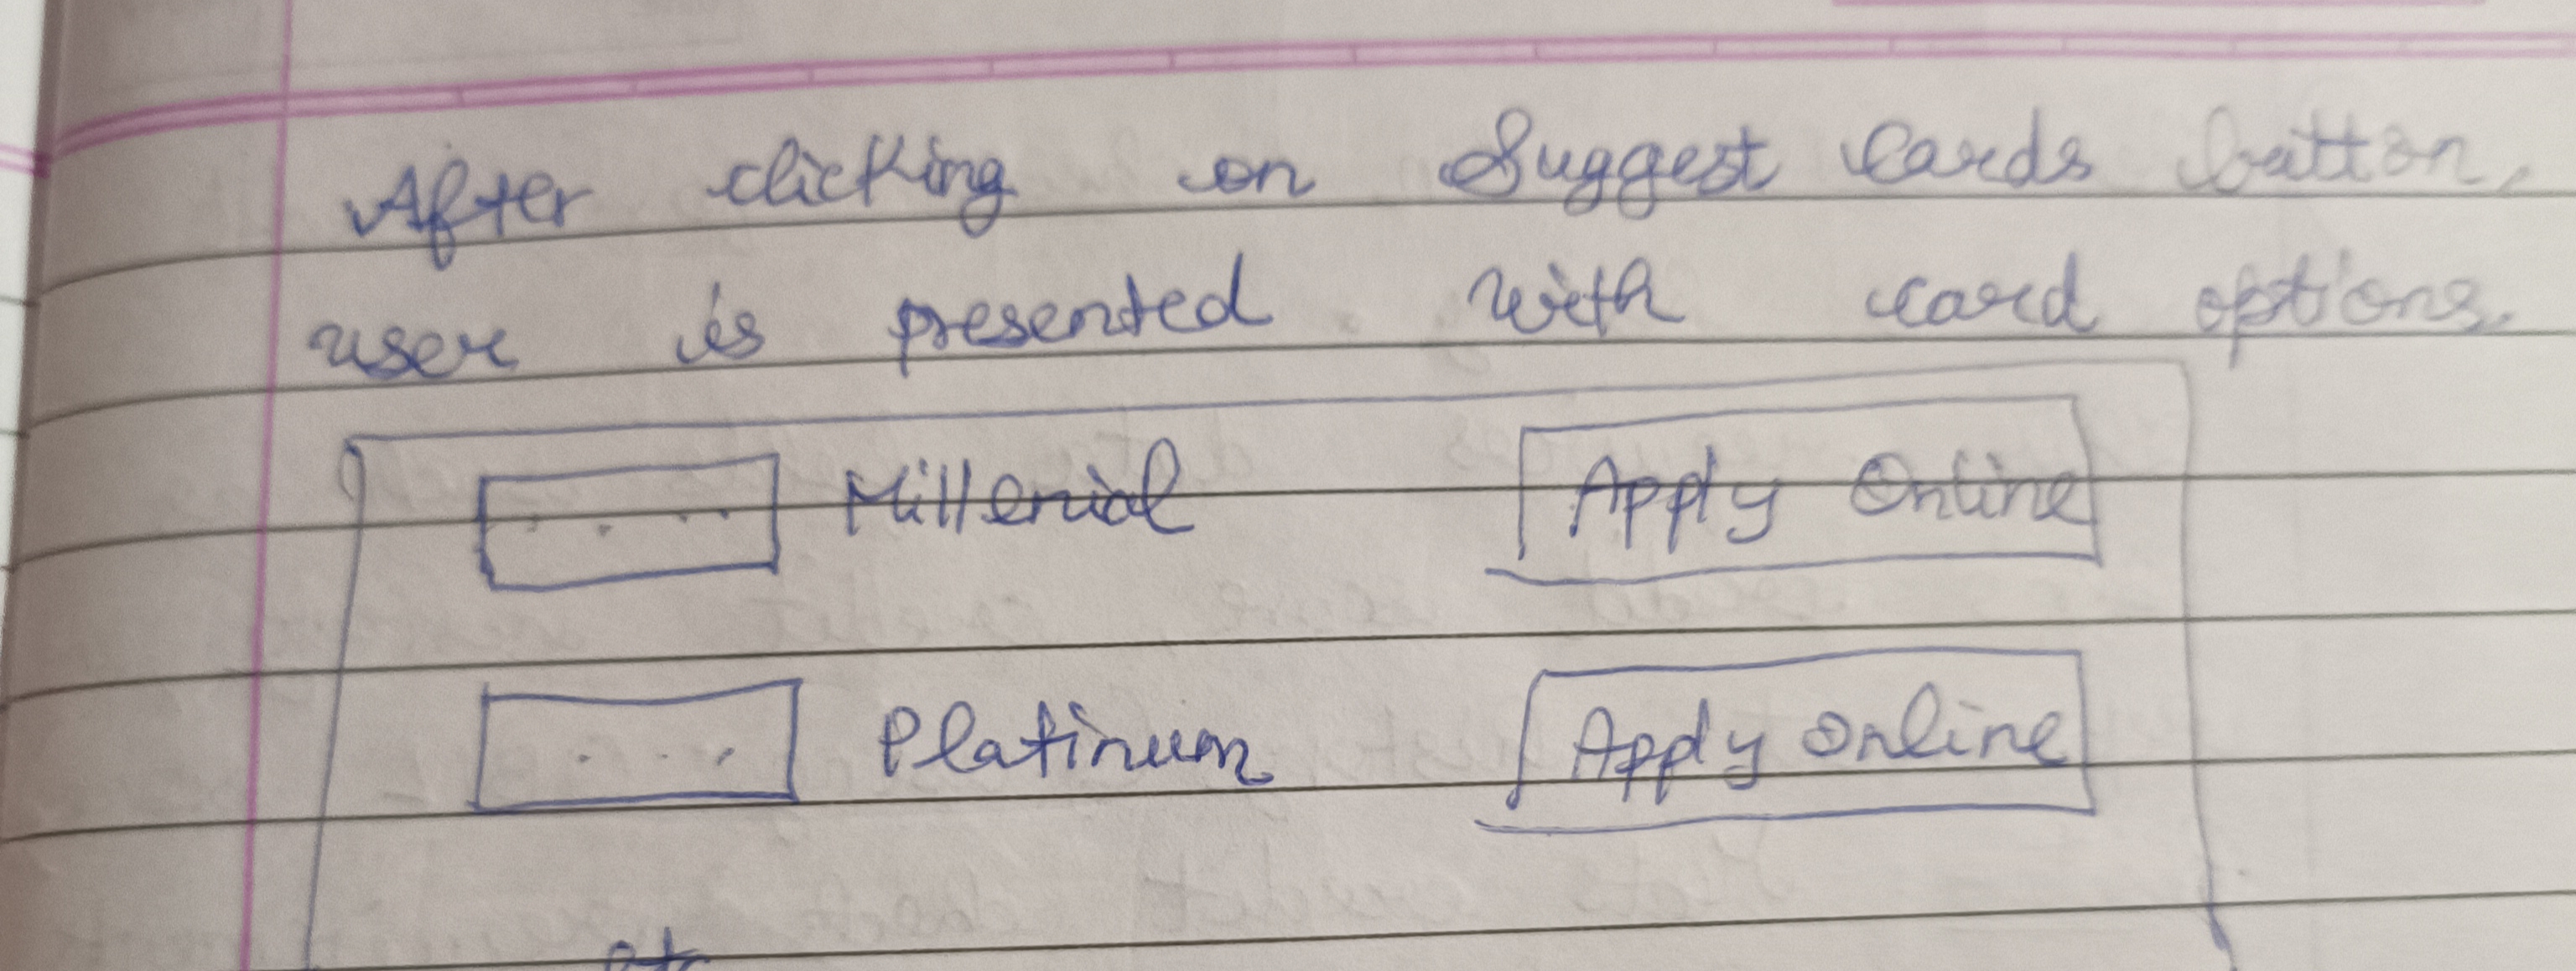 After clicking on Suggest Cards button,
user is presented with card options.
Millenial Apply Online
Platinum Apply Online